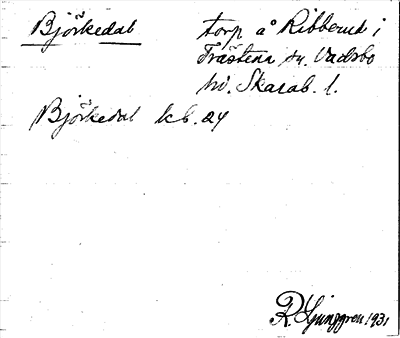 Björkedal
torp å Ribberud i
Trästena sn. Vadsbo
hd. Skarab. l.
Björkedal kb. ay
R. Ljunggren 1931